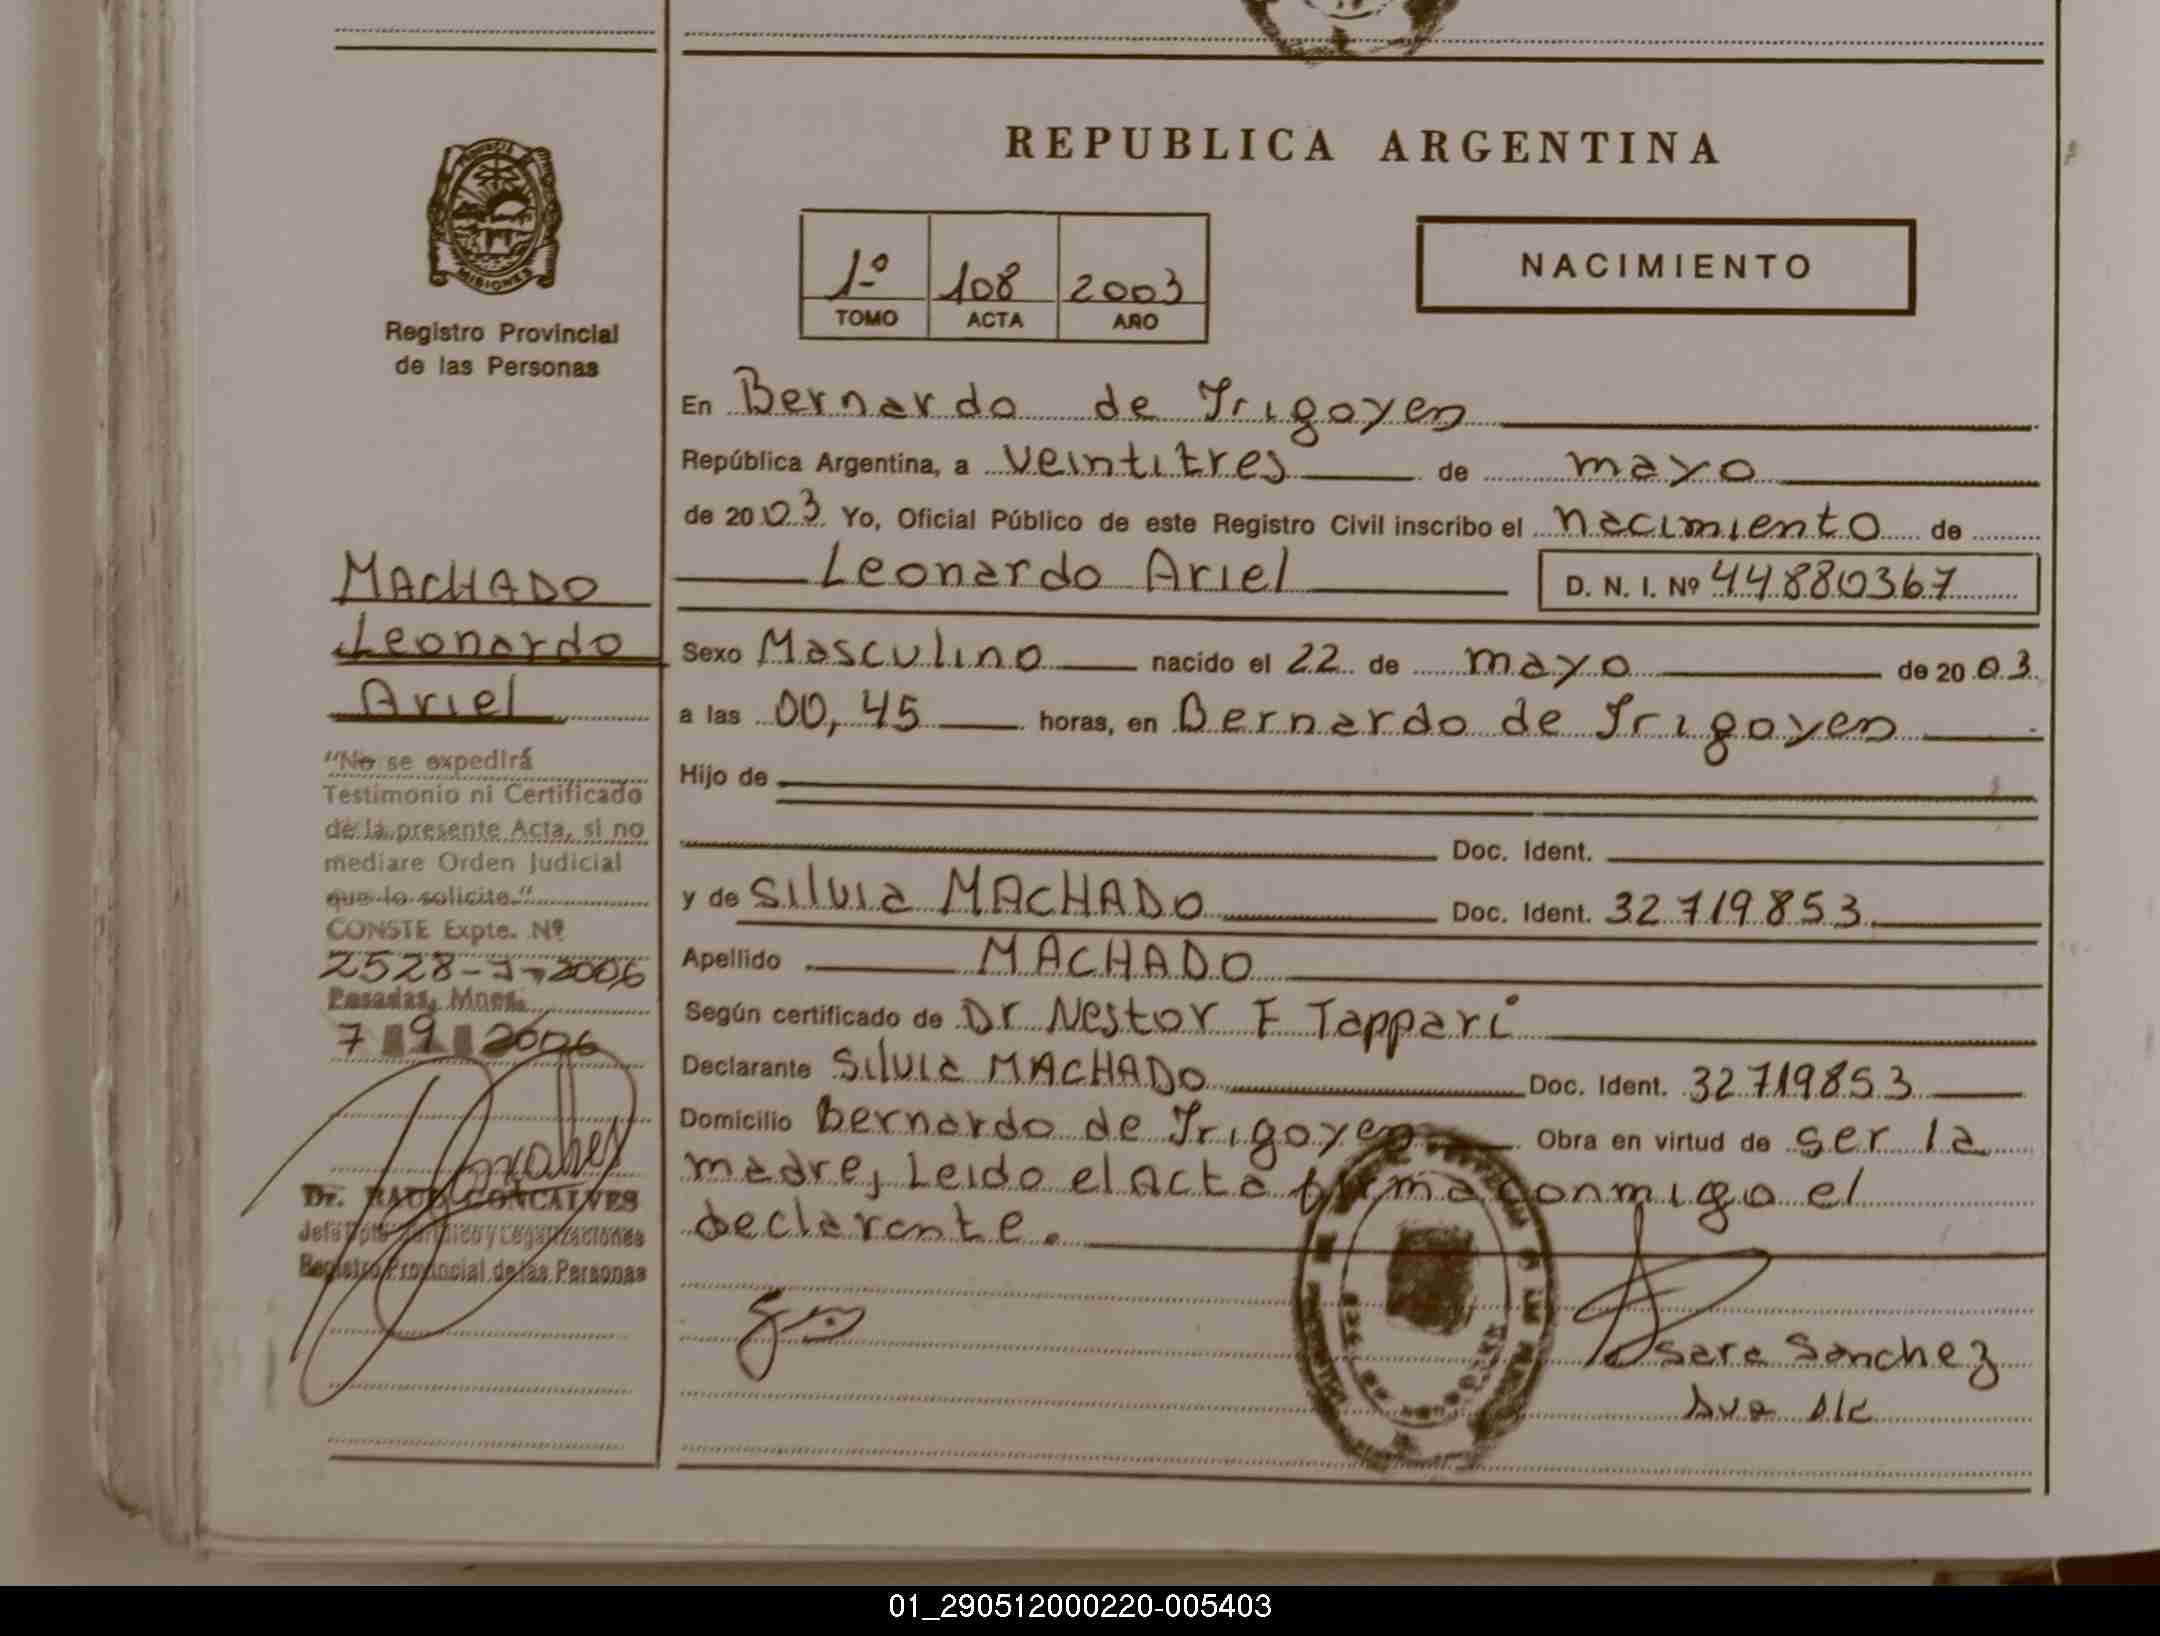 REPUBLICA ARGENTINA
1º 108 2003
TOMO ACTA AÑO
NACIMIENTO
MISIONES
Registro Provincial
de las Personas
MACHADO
Leonardo
Ariel
"No se expedirá
Testimonio ni Certificado
de la presente Acta, si no
mediare Orden Judicial
que lo solicite."
CONSTE Expte. Nº
2528-J-2006
Posadas, Mnes.
7 9 2006
Dr. RAUL GONCALVES
Jefe Dpto Jurídico y Legalizaciones
Registro Provincial de las Personas
En Bernardo de Irigoyen
República Argentina, a veintitres de mayo
de 2003 Yo, Oficial Público de este Registro Civil inscribo el nacimiento de
Leonardo Ariel D. N. I. Nº 44880367
Sexo Masculino nacido el 22 de mayo de 2003
a las 00,45 horas, en Bernardo de Irigoyen
Hijo de
Doc. Ident.
y de Silvia MACHADO Doc. Ident. 32719853
Apellido MACHADO
Según certificado de Dr Nestor F Tappari
Declarante Silvia MACHADO Doc. Ident. 32719853
Domicilio Bernardo de Irigoyen Obra en virtud de ser la
madre, Leido el acta firma conmigo el
declarante.
Sara Sanchez
01_290512000220-005403